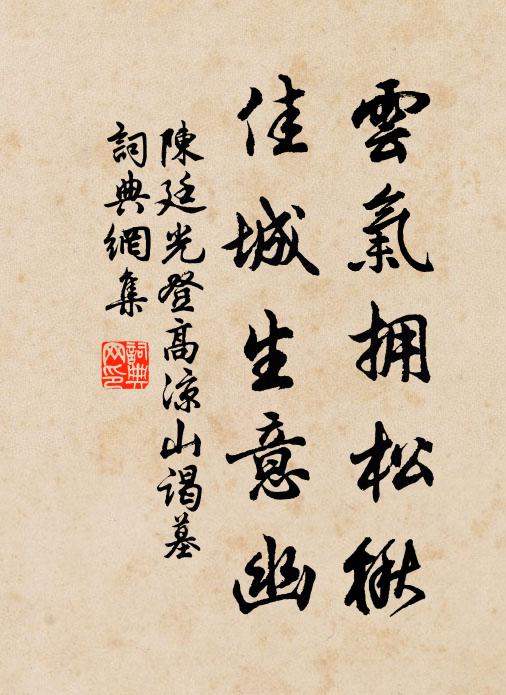 雲氣擁松楸
佳城生意幽
陳廷光登高涼山謁墓
詞典網集
詞典
網印